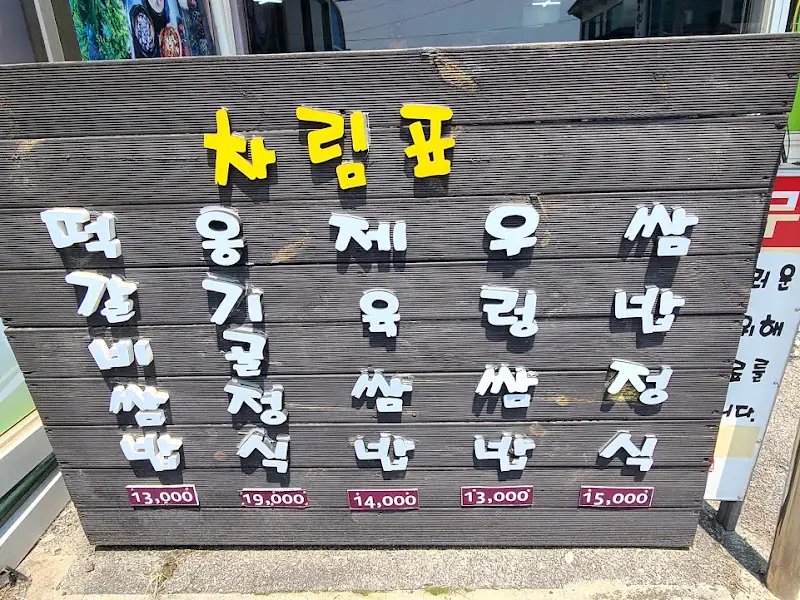 차림표
떡갈비쌈밥
옹기골정식
제육쌈밥
우렁쌈밥
쌈밥정식
13,000
19,000
14,000
13,000
15,000